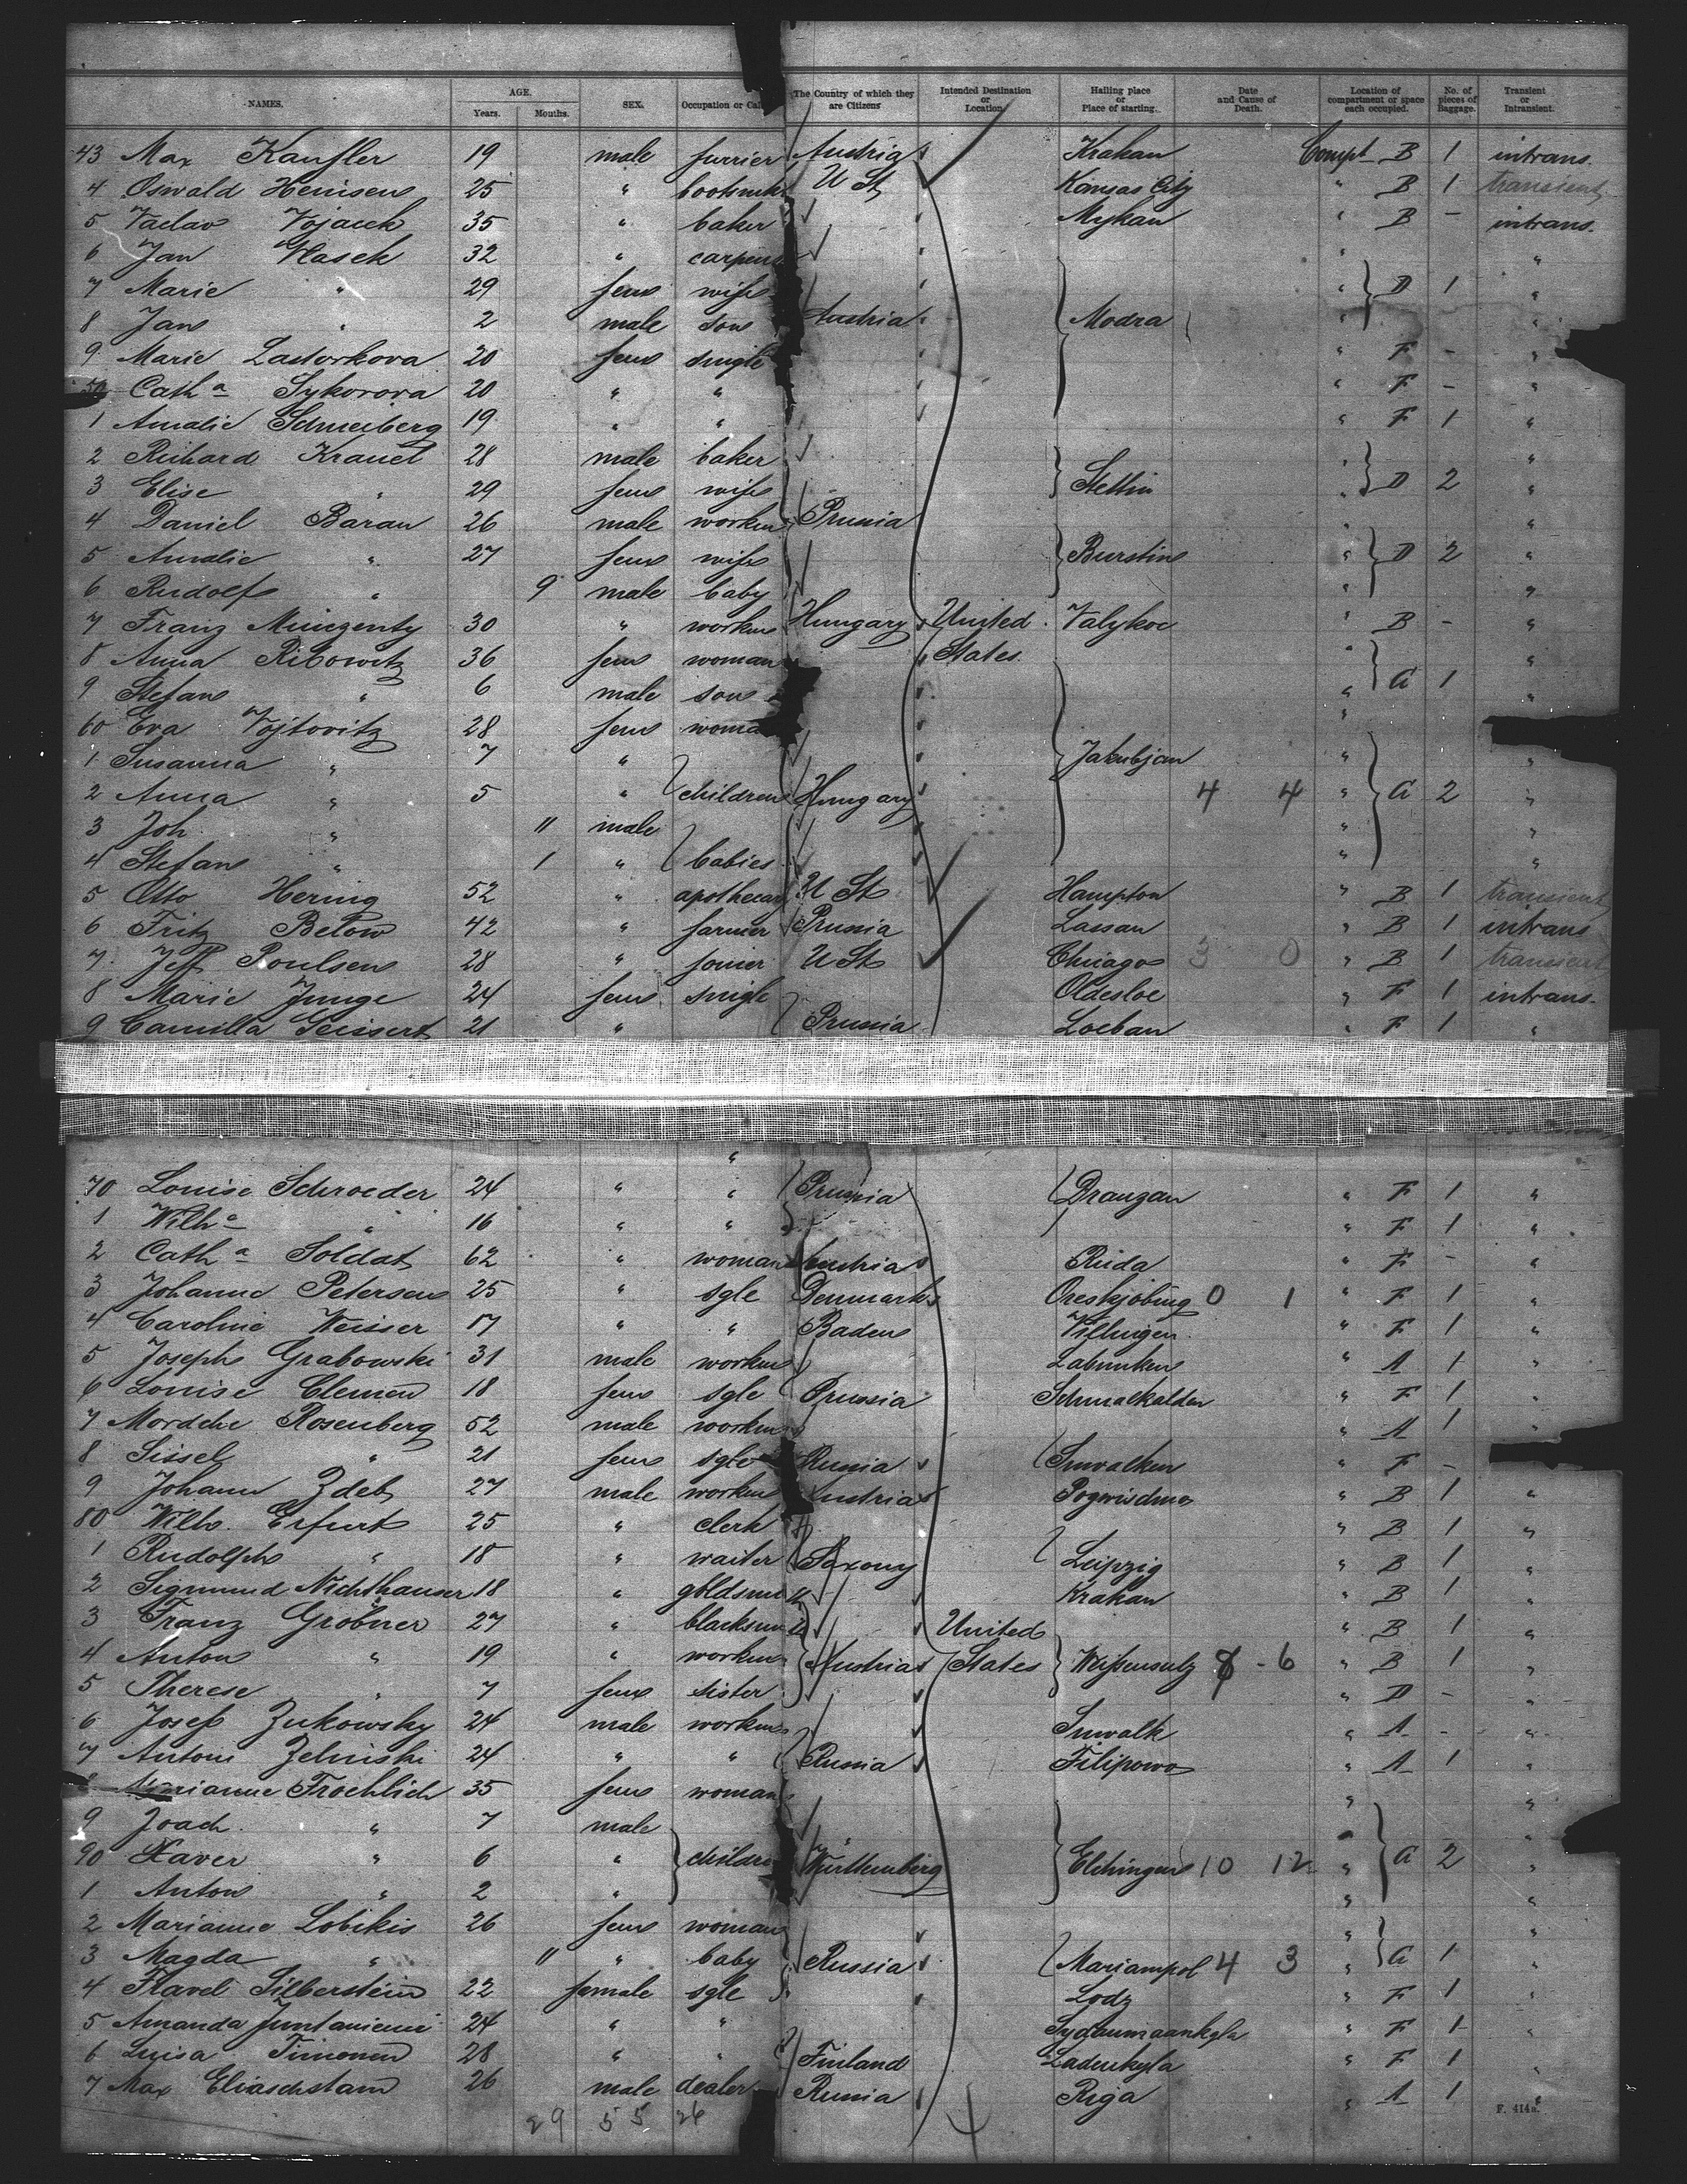 NAMES. AGE. Years. Months. SEX. Occupation or Cal The Country of which they are Citizens Intended Destination or Location. Hailing place or Place of starting. Date and Cause of Death. Location of compartment or space each occupied. No. of pieces of Baggage. Transient or Intransient.
43 Max Kaufler 19 male furrier Austria Krakau Compt B 1 intrans.
4 Oswald Heinsen 25 " U St Kansas City " B 1 transient
5 Vaclav Vojacek 35 " baker Mykau " B - intrans.
6 Jan Vlasek 32 " " "
7 Marie " 29 fem wife " D 1 "
8 Jan " 2 male son Austria Modra " "
9 Marie Lastorkova 20 fem single " F - "
50 Cath a Sykorova 20 " " " F - "
1 Amalie Schneiberg 19 " " " F 1 "
2 Richard Krauel 28 male baker " "
3 Elise " 29 fem wife Stettin " D 2 "
4 Daniel Baran 26 male workm Prussia " "
5 Amalie " 27 fem wife Burstin " D 2 "
6 Rudolf " 9 male baby " "
7 Franz 30 " workm Hungary United Valykoc " B - "
8 Anna Ribowitz 36 fem woman States. " "
9 Stefan " 6 male son " a 1 "
60 Eva Vojtovitz 28 fem woma "
1 Susanna " 7 " Jakubjan " "
2 Anna " 5 " children Hungary 4 4 " a 2 "
3 Joh. " 11 male " "
4 Stefan " 1 " babies " "
5 Otto Hering 52 " apothecar U St Hampton " B 1 transient
6 Fritz Below 42 " farmer Prussia Lassan " B 1 intrans
7 Jeff Poulsen 28 " joiner U St Chicago 3 0 " B 1 transient
8 Marie Junge 24 fem single Oldesloe " F 1 intrans.
9 Camilla Geissert 21 " Prussia Loebau " F 1 "
"
70 Louise Schroeder 24 " " Prussia Drauzau " F 1 "
1 Wilh a " 16 " " " F 1 "
2 Cath a Soldat 62 " woman Austria Ruda " F - "
3 Johanne Petersen 25 " sgle Denmark 0 1 " F 1 "
4 Caroline Weisser 17 " " Baden Villingen " F 1 "
5 Joseph Grabowski 31 male workm " A 1 "
6 Louise Clemen 18 fem sgle Prussia Schmalkalden " F 1 "
7 Mordche Rosenberg 52 male workm " A 1
8 Sissel " 21 fem sgle Russia Suwalken " F -
9 Johann Zdeb 27 male workm Austria " B 1 "
80 Wilh. Erfurt 25 " clerk " B 1 "
1 Rudolph " 18 " waiter Saxony Leipzig " B 1 "
2 Sigmund Nichthauser 18 " goldsm Krakau " B 1 "
3 Franz Gröbner 27 " blacksm United " B 1 "
4 Anton " 19 " workm Austria States Weissensulz - 6 " B 1 "
5 Therese " 7 fem sister " D - "
6 Josef Zukowsky 24 male workm Suwalk " A - "
7 Anton Zelinski 24 " " Russia Filipowo " A 1 "
8 Marianne Froehlich 35 fem woman " "
9 Joach. " 7 male "
90 Xaver " 6 " childre Württemberg Elchingen 10 12 " a 2 "
1 Anton " 2 " " "
2 Marianne Lobikis 26 fem woman " "
3 Magda " 11 " baby Russia Mariampol 4 3 " a 1 "
4 Silberstein 22 female sgle Lodz " F 1 "
5 Amanda Juntaniemi 24 " " " F 1 "
6 Luisa Timonen 28 " " Finland " F 1 "
7 Max Eliaschstam 26 male dealer Russia Riga " A 1 "
29 55 26
F. 414a.